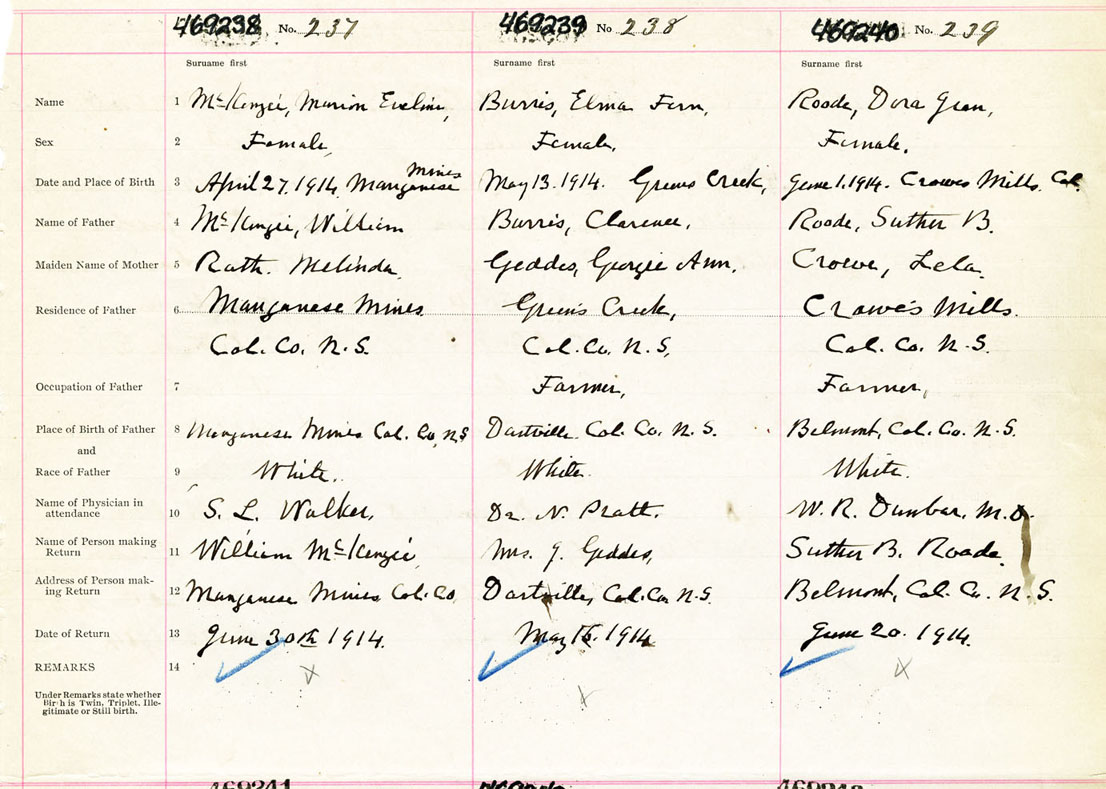 469238 No. 237 469239 No 238 469240 No. 239
Surname first Surname first Surname first
Name 1 McKenzie, Marion Eveline, Burris, Elma Fern, Roode, Dora Gran,
Sex 2 Female, Female, Female.
Mines
Date and Place of Birth 3 April 27, 1914, Manganese May 13. 1914. Greens Creek, June 1. 1914. Crowes Mills. Col.
Name of Father 4 McKenzie, William Burris, Clarence, Roode, Suther B.
Maiden Name of Mother 5 Rath. Melinda Geddes, Georgie Ann. Crowe, Lela.
Residence of Father 6 Manganese Mines Green's Creek, Crowe's Mills.
Col. Co. N.S. Col. Co. N.S, Col. Co. N.S.
Occupation of Father 7 Farmer, Farmer,
Place of Birth of Father 8 Manganese Mines Col. Co, N.S Dartville Col. Co. N.S. Belmont, Col. Co. N.S.
and
Race of Father 9 White. White. White.
Name of Physician in
attendance 10 S. L. Walker, Dr. N. Pratt. W. R. Dunbar. M.D.
Name of Person making
Return 11 William McKenzie Mrs. J. Geddes, Suther B. Roode.
Address of Person mak-
ing Return 12 Manganese Mines Col. Co, Dartville, Col. Co. N.S. Belmont, Col. Co. N.S.
Date of Return 13 June 30th 1914. May 16. 1914 June 20. 1914.
REMARKS 14
Under Remarks state whether
Birth is Twin, Triplet, Ille-
gitimate or Still birth.
469241